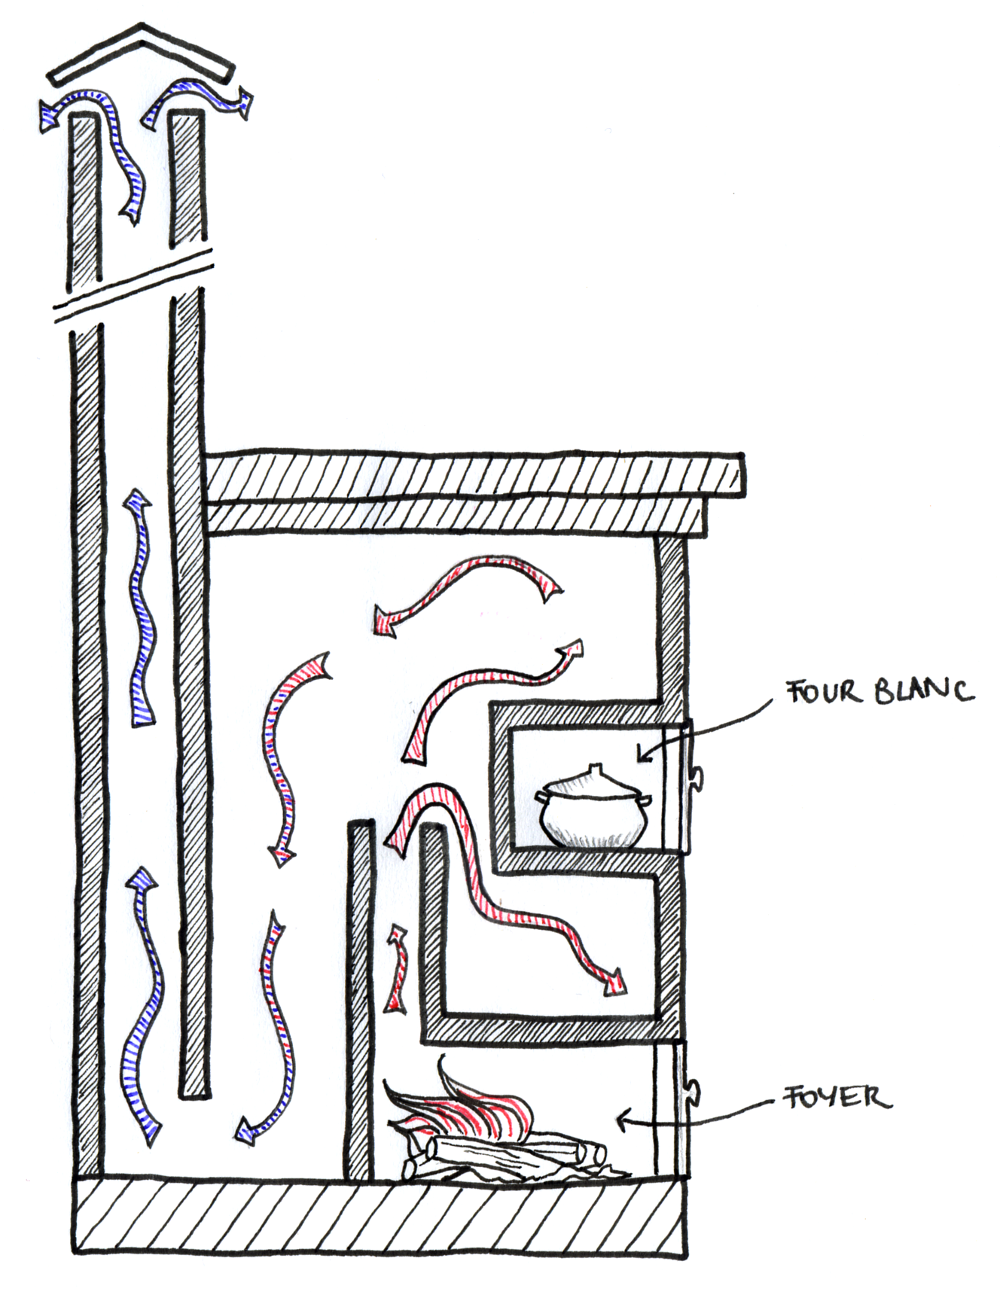 FOUR BLANC
FOYER